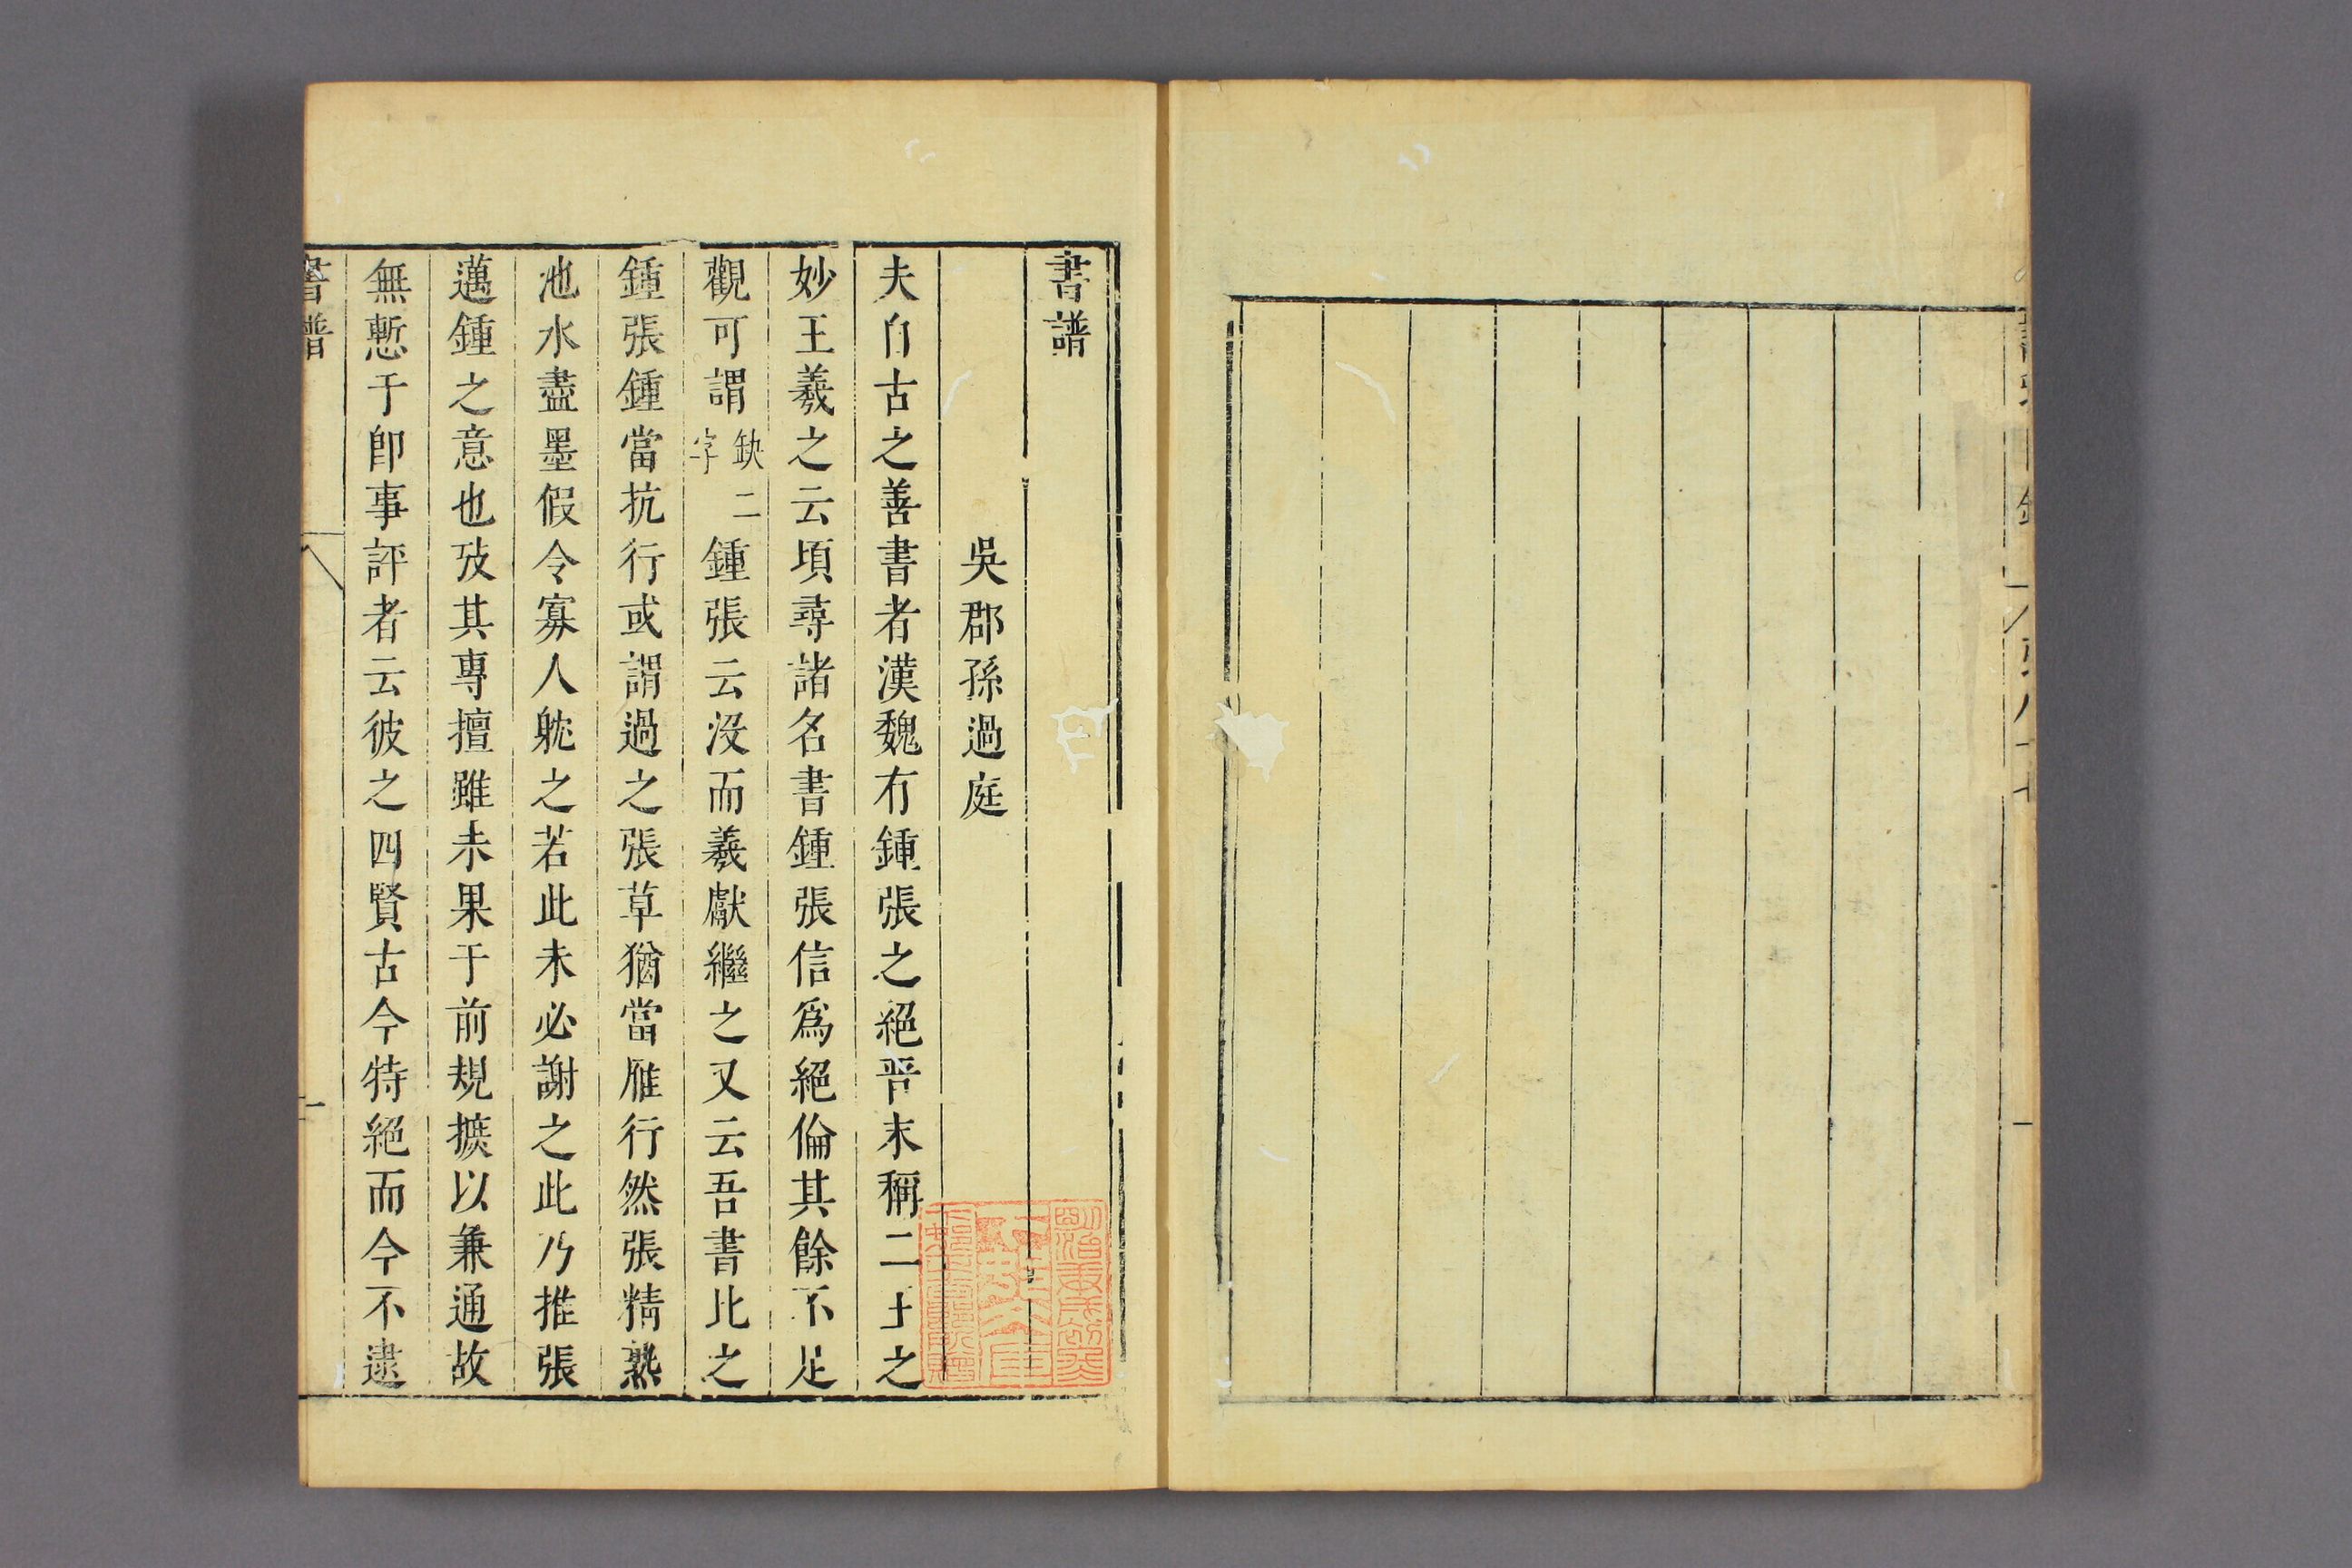 書譜
吳郡孫過庭
夫自古之善書者漢魏有鍾張之絕晉末稱二王之
妙王羲之云頃尋諸名書鍾張信爲絕倫其餘不足
觀可謂缺二字鍾張云沒而羲獻繼之又云吾書比之
鍾張鍾當抗行或謂過之張草猶當雁行然張精熟
池水盡墨假令寡人躭之若此未必謝之此乃推張
邁鍾之意也攷其專擅雖未果于前規摭以兼通故
無慙于卽事評者云彼之四賢古今特絕而今不逮
書譜
一